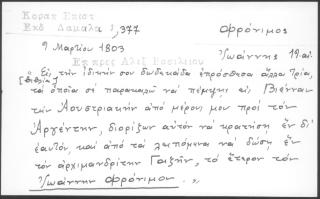 Κοραη Επιστ
Εκδ Δαμαλα 1,377
Φρόνιμος
9 Μαρτίου 1803
Ἰωάννης 19 αἰ.
Επ πρός Αλεξ Βασιλειου
Εἰς τὴν ἰδικήν σου δωδεκάδα ἐπρόσθεσα ἄλλα τρία,
[βιβλία]
τὰ ὁποῖα σὲ παρακαλῶ νὰ πέμψῃς εἰς Βιένναν
τὴν Ἀουστριακὴν ἀπὸ μέρους μου πρὸς τὸν
Ἀργέντην, διορίζων αὐτὸν νὰ κρατήσῃ ἓν δι'
ἑαυτὸν καὶ ἀπὸ τὰ λειπόμενα νὰ δώσῃ ἓν
τὸν ἀρχιμανδρίτην Γαζῆν, τὸ ἕτερον τὸν
Ἰωάννην Φρόνιμον.